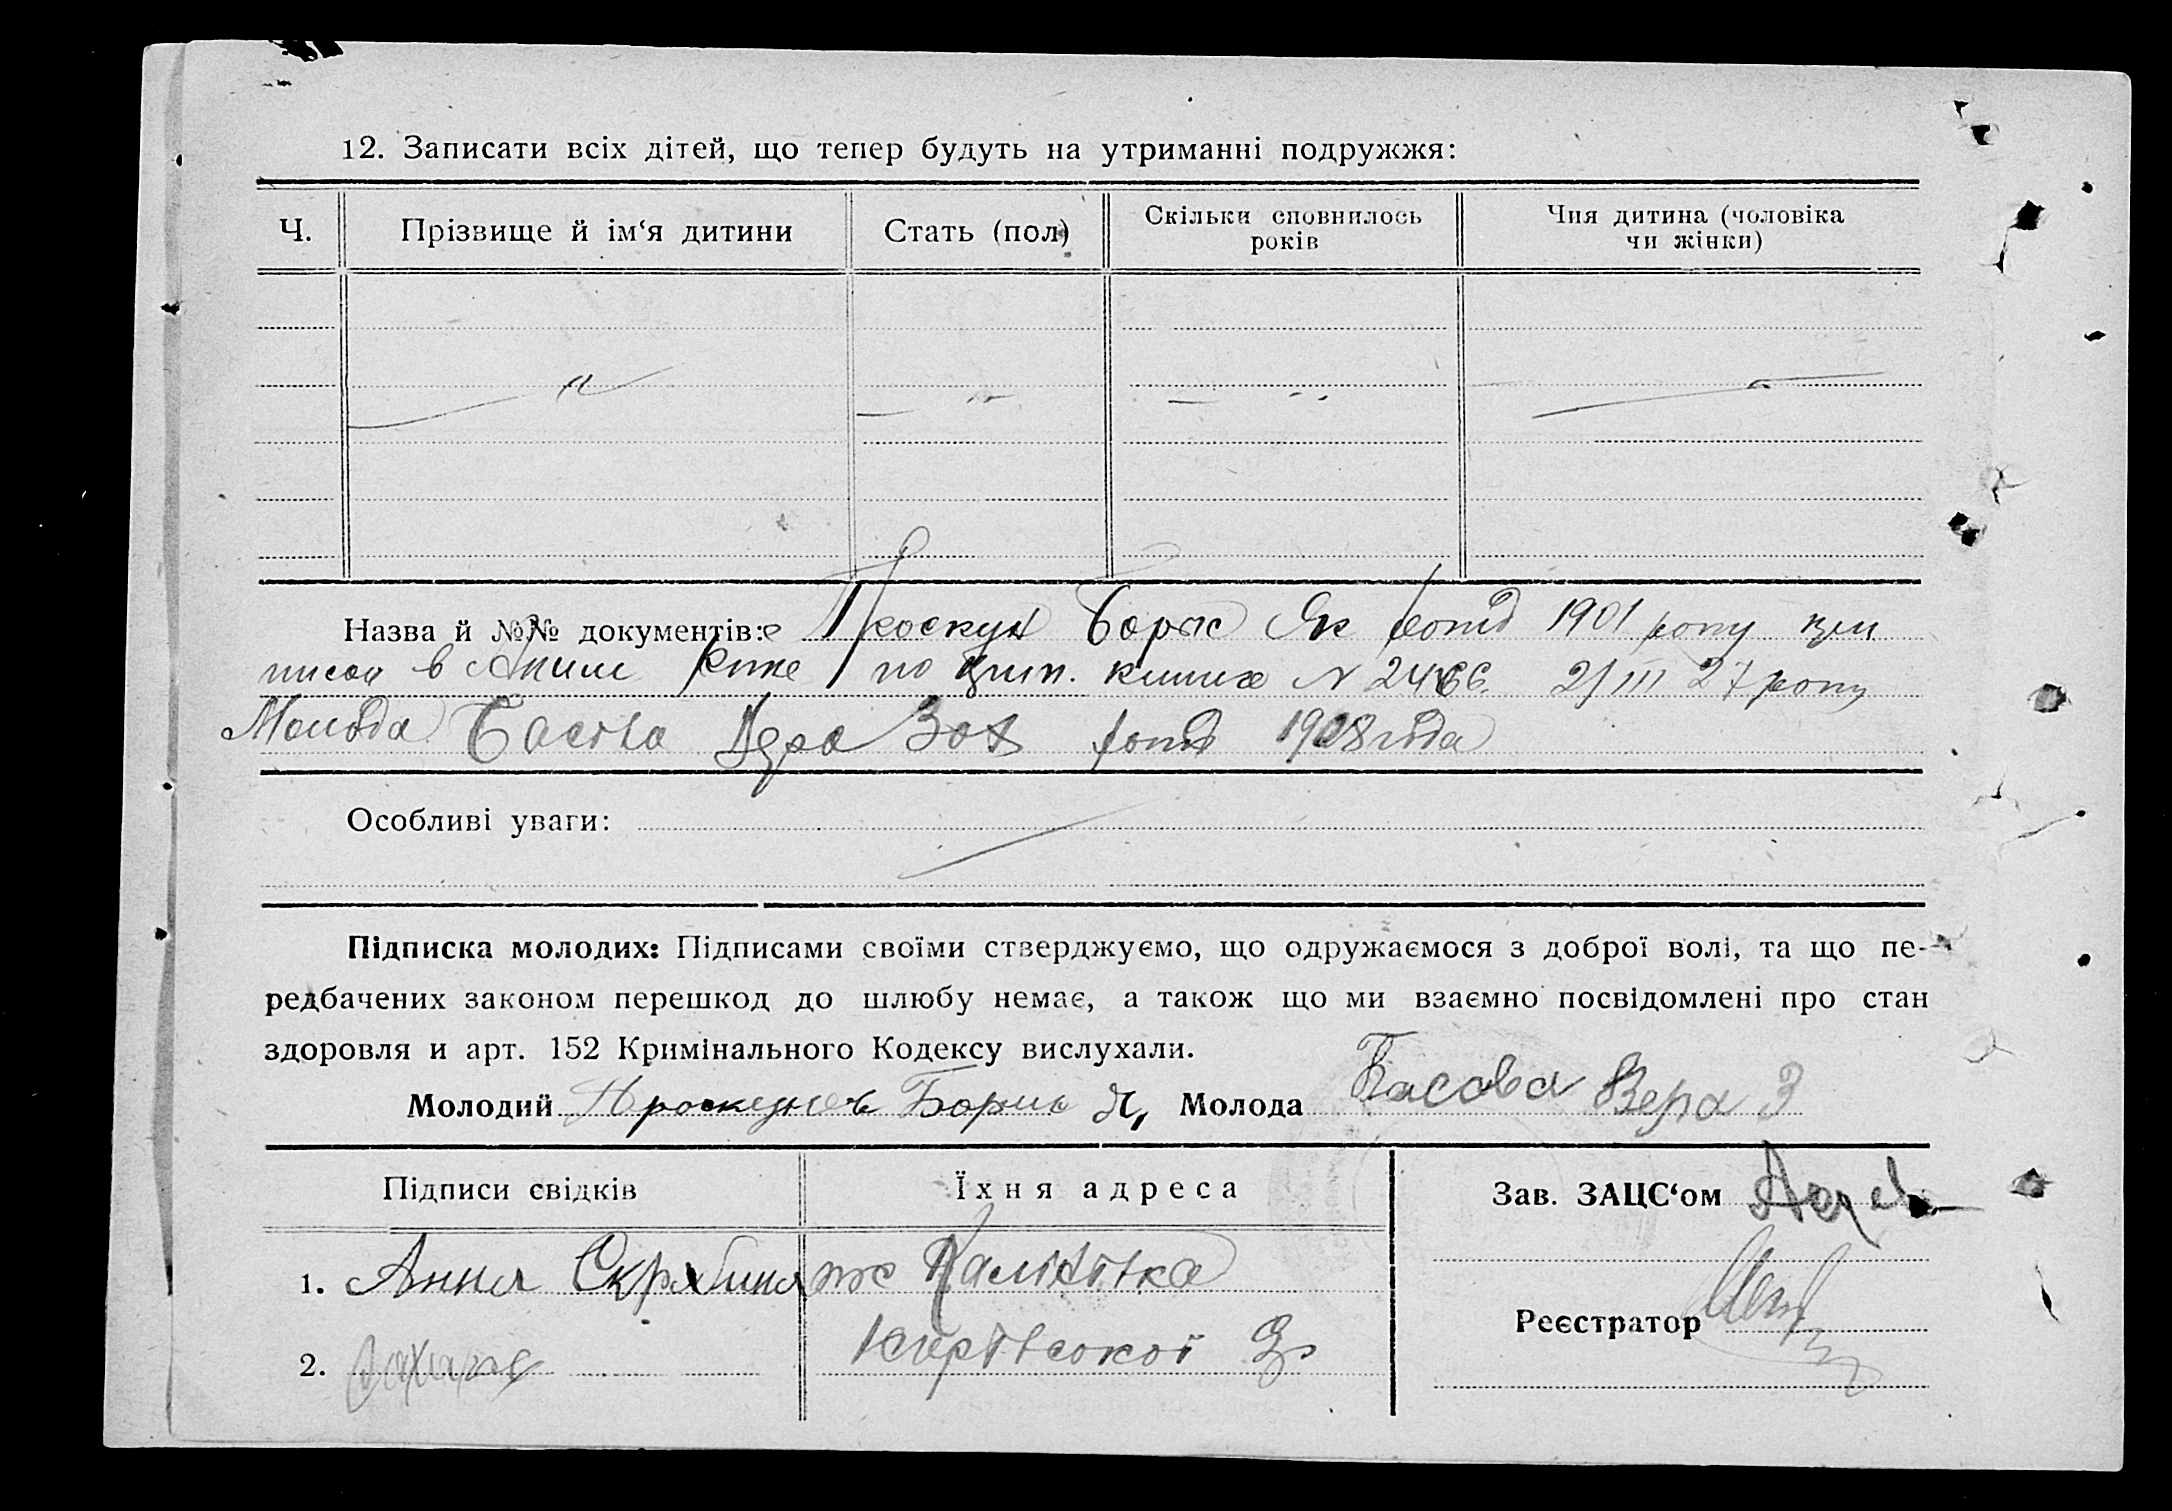 12. Записати всіх дітей, що тепер будуть на утриманні подружжя:
Ч. Прізвище й ім‘я дитини Стать (пол) Скільки сповнилось років Чия дитина (чоловіка чи жінки)
Назва й №№ документів: Проскун Борис Як 1901 року
в по книге N 2466. 2/III 27 року
Молода Басова Зах 1908 года
Особливі уваги:
Підписка молодих: Підписами своїми стверджуємо, що одружаємося з доброї волі, та що пе-
редбачених законом перешкод до шлюбу немає, а також що ми взаємно посвідомлені про стан
здоровля и арт. 152 Кримінального Кодексу вислухали.
Молодий Борис Я, Молода Басова Вера З
Підписи свідків Їхня адреса Зав. ЗАЦС‘ом
1. Анна Скрябина
Реєстратор
2.